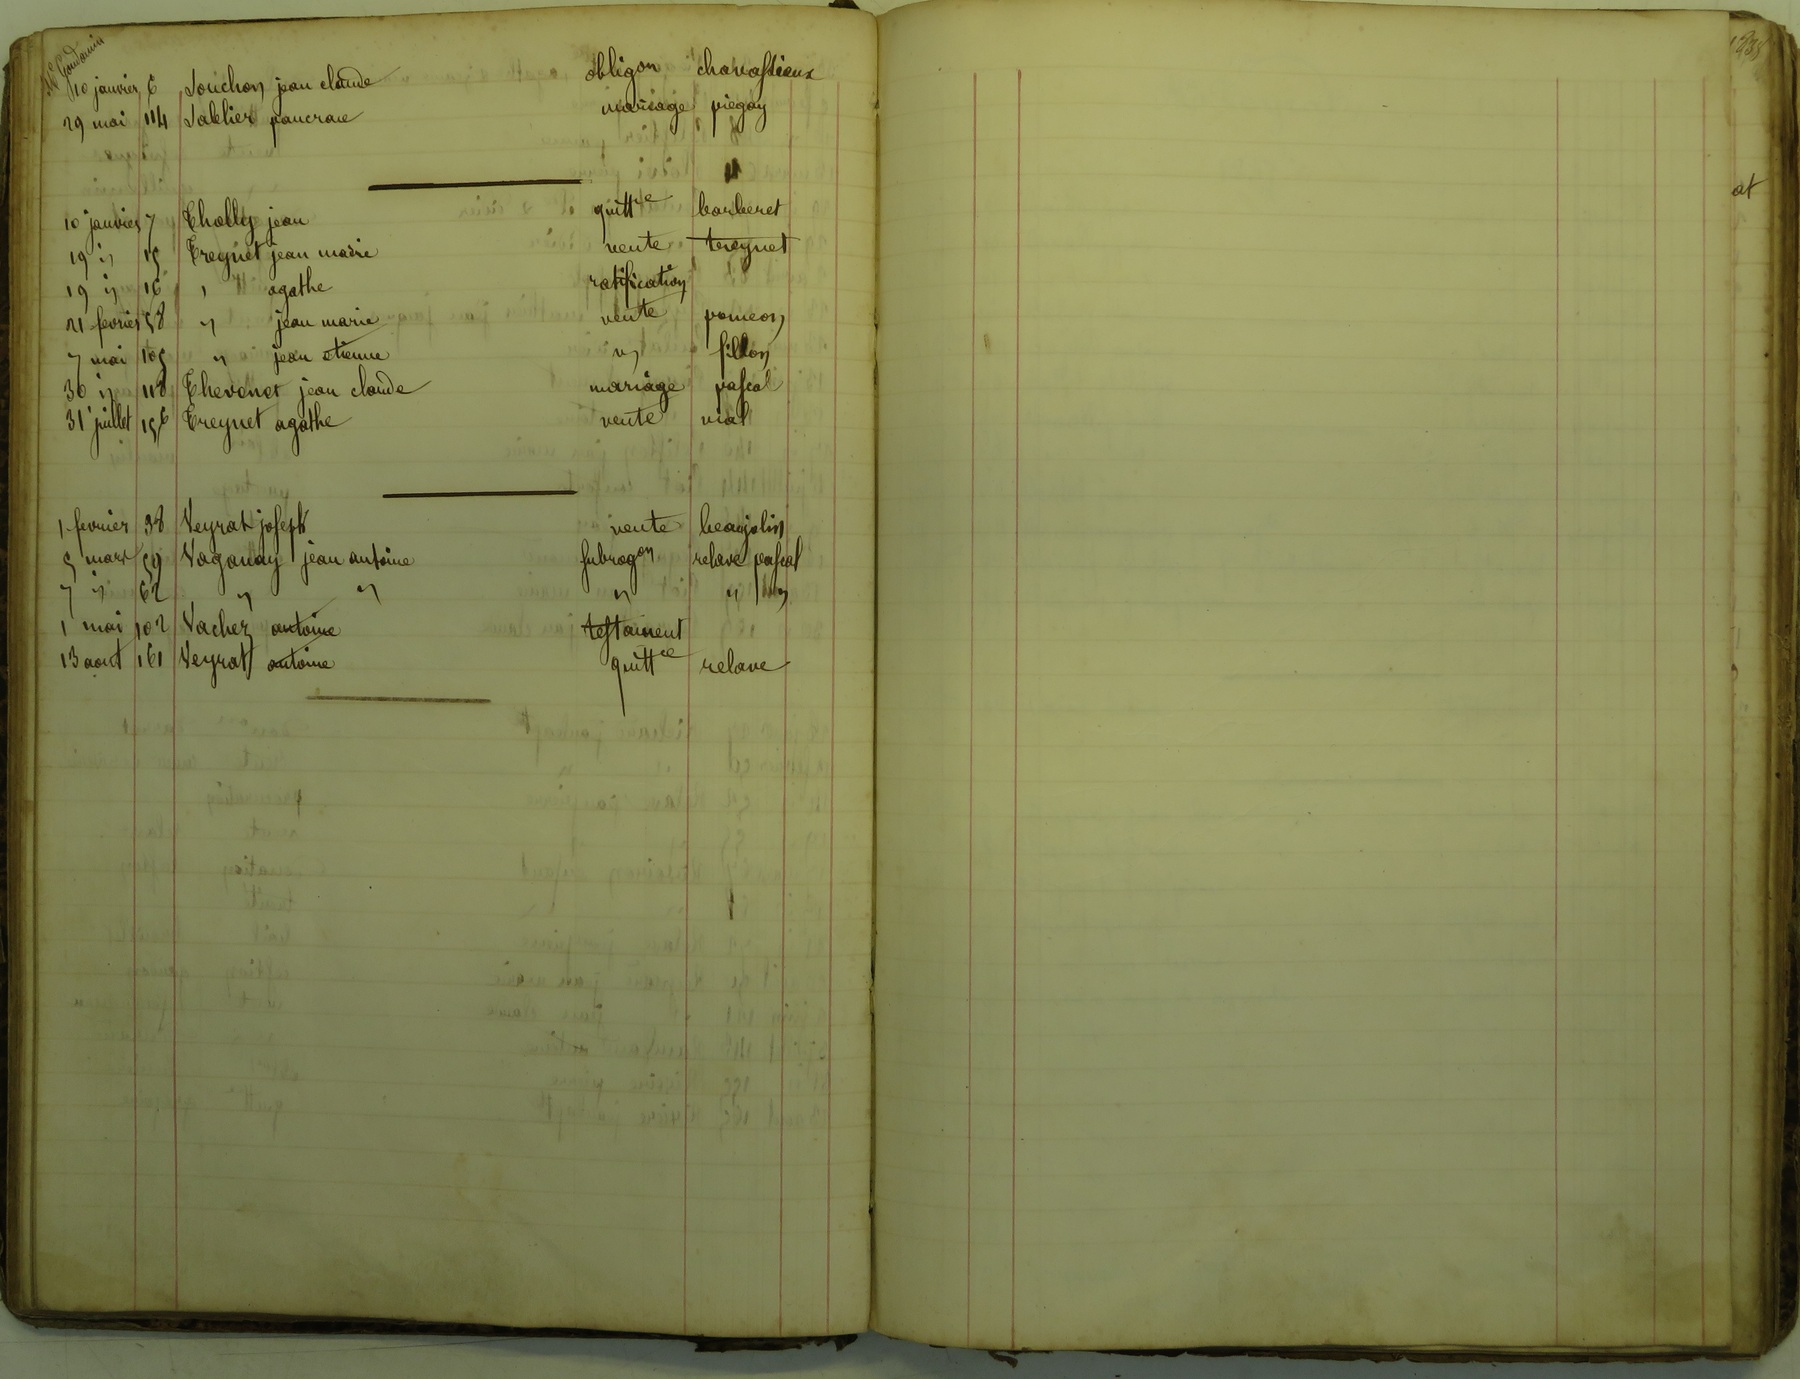 10 janvier 6 Souchon jean claude obligon chavassieux
29 mai 114 Sablier pancrace mariage piegay
10 janvier 7 Cholly jean quittce barberet
19 " 15 Treynet jean marie vente treynet
19 " 16 " agathe ratification
21 fevrier 58 " jean marie vente pomeon
7 mai 105 " jean etienne " fillon
30 " 118 Thevenet jean claude mariage pascal
31 juillet 156 Treynet agathe vente vial
1 fevrier 38 Veyrat joseph vente beaujolin
5 mars 59 Vaganay jean antoine subrogon relave pascal
7 " 62 " " " "
1 mai 102 Vacher antoine testament
13 aout 161 Veyrat antoine quittce relave